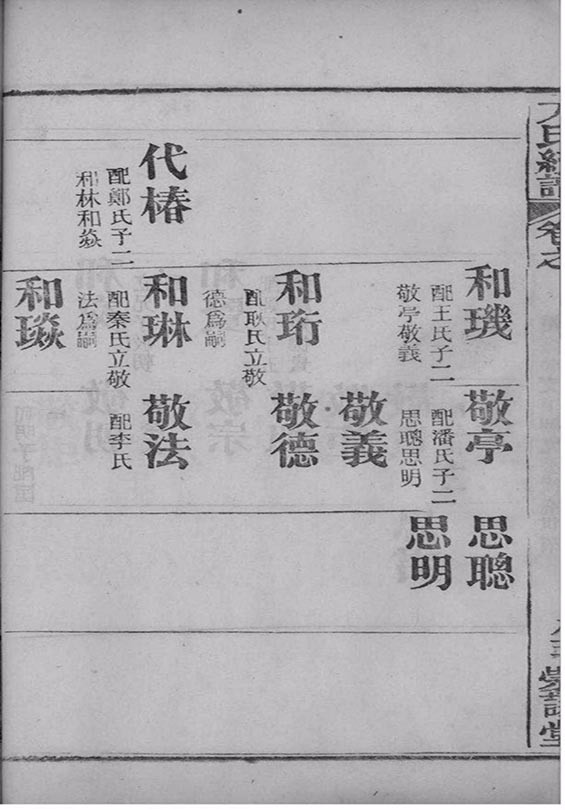 氏續譜
卷之
和璣
配王氏子二
敬亭敬義
敬亭
配潘氏子二
思聰思明
思聰
思明
敬義
和珩
配耿氏立敬
德爲嗣
敬德
代椿
配鄭氏子二
和林和焱
和琳
配秦氏立敬
法爲嗣
敬法
配李氏
和琰